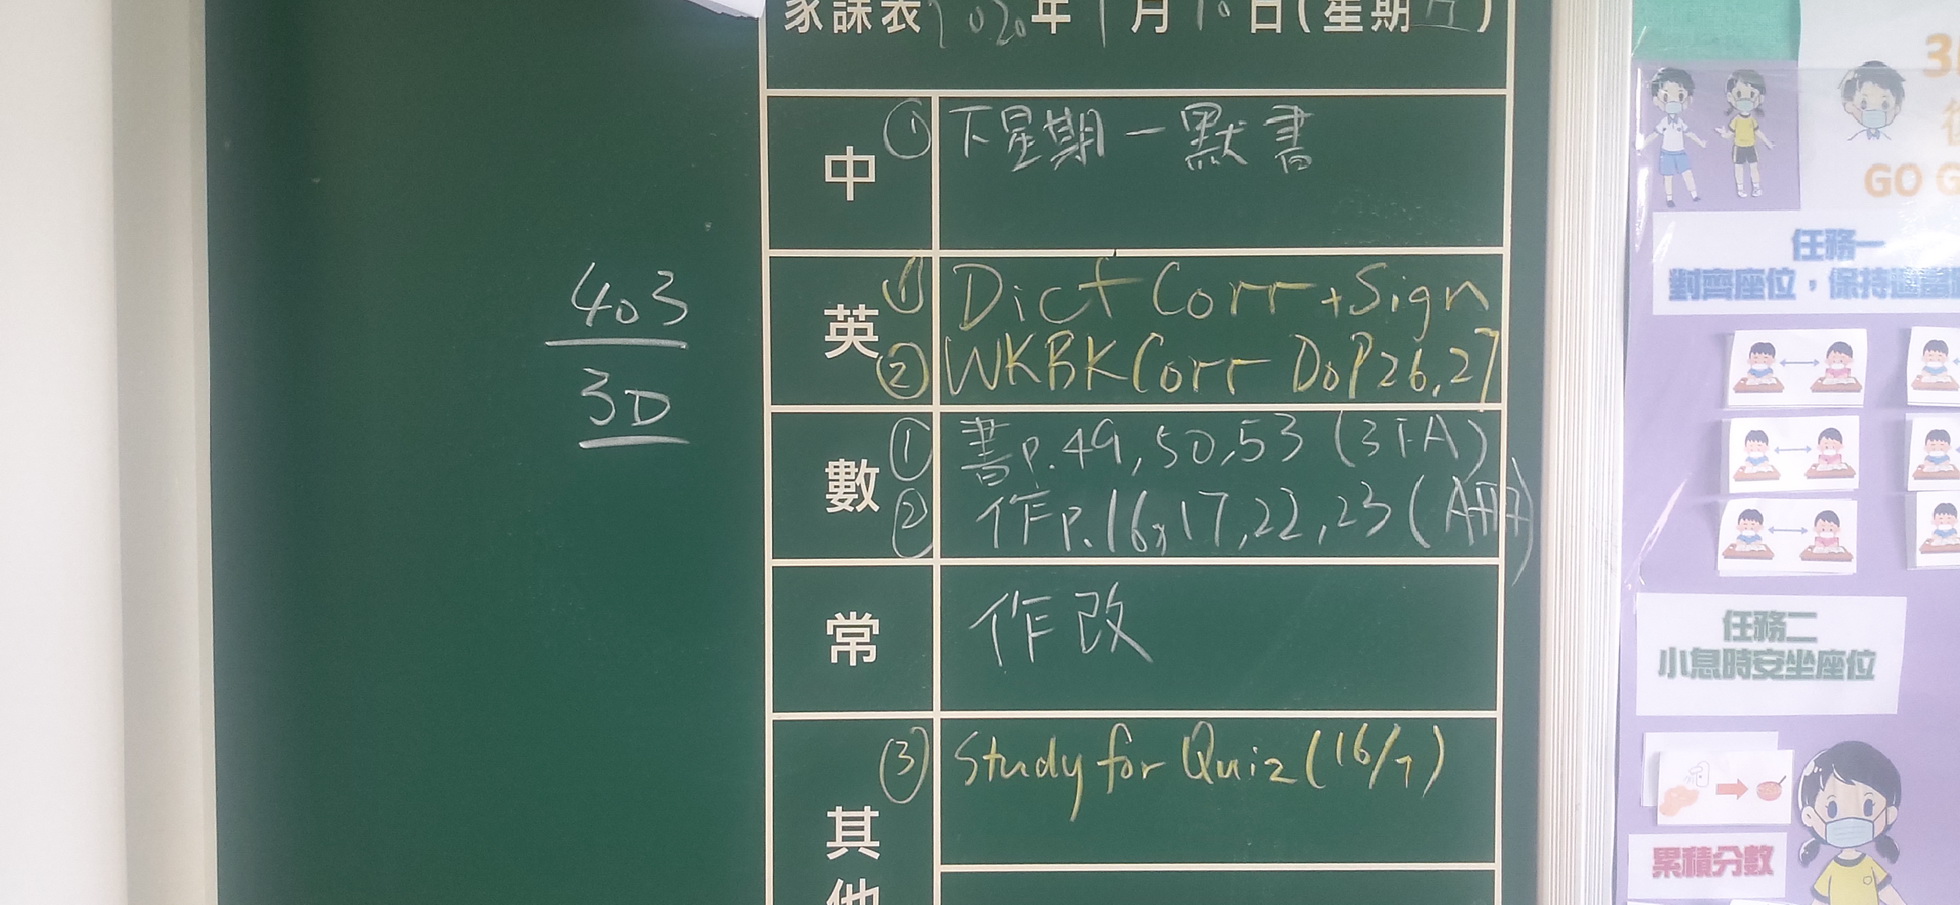 家課表 2020年 7月 10日(星期五)
中 ① 下星期一默書
英 ① Dict Corr + Sign
② WKBK Corr Do P26,27
數 ① 書P.49,50,53 (3下A)
② 作P.16,17,22,23 (A冊)
常 作改
③ Study for Quiz (16/7)
其他
403
3D
GO G
任務一
對齊座位，保持適當
任務二
小息時安坐座位
累積分數